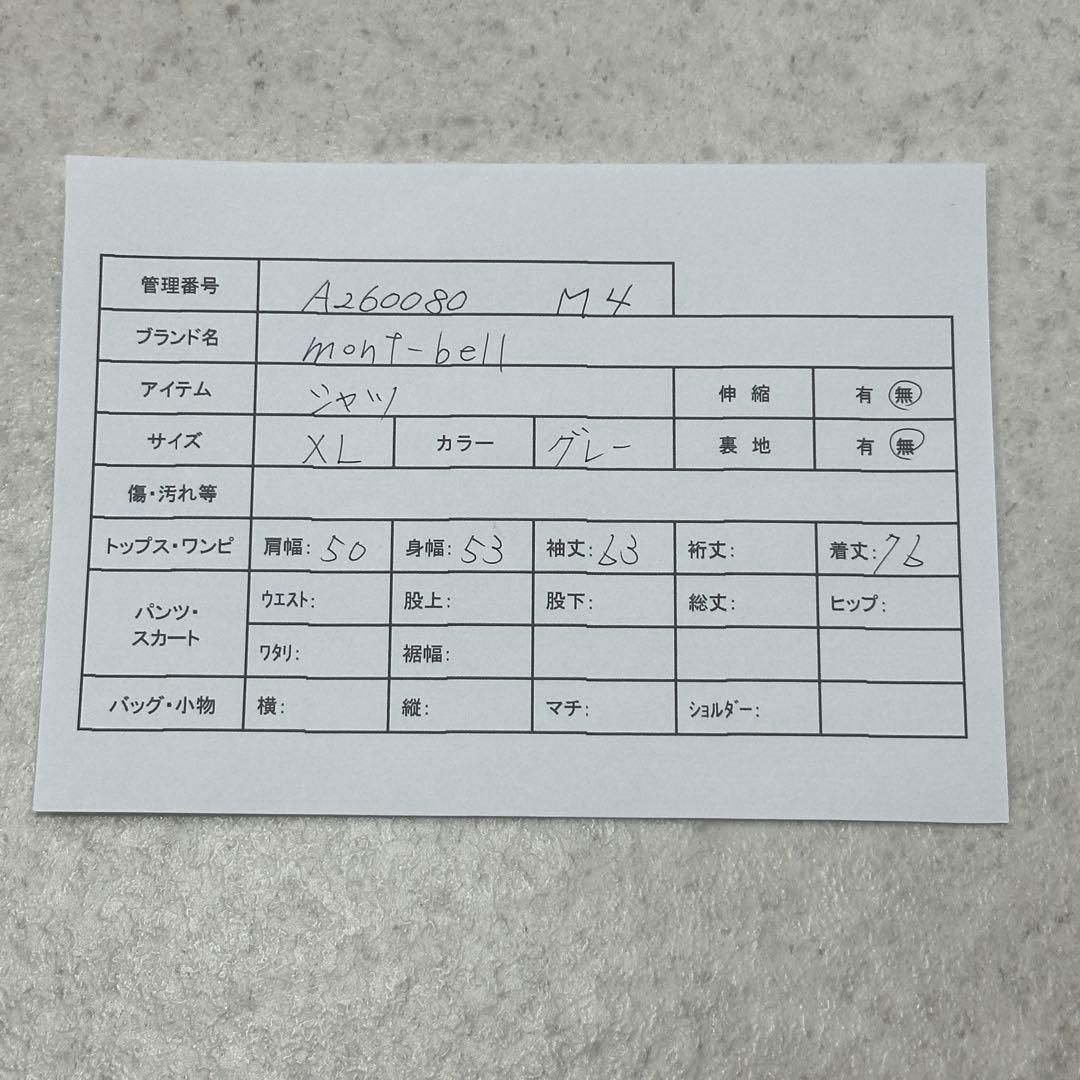 管理番号 A260080 M4
ブランド名 mont-bell
アイテム シャツ 伸縮 有 無
サイズ XL カラー グレー 裏地 有 無
傷・汚れ等
トップス・ワンピ 肩幅: 50 身幅: 53 袖丈: 63 裄丈: 着丈: 76
パンツ・スカート ウエスト: 股上: 股下: 総丈: ヒップ:
ワタリ: 裾幅:
バッグ・小物 横: 縦: マチ: ショルダー: